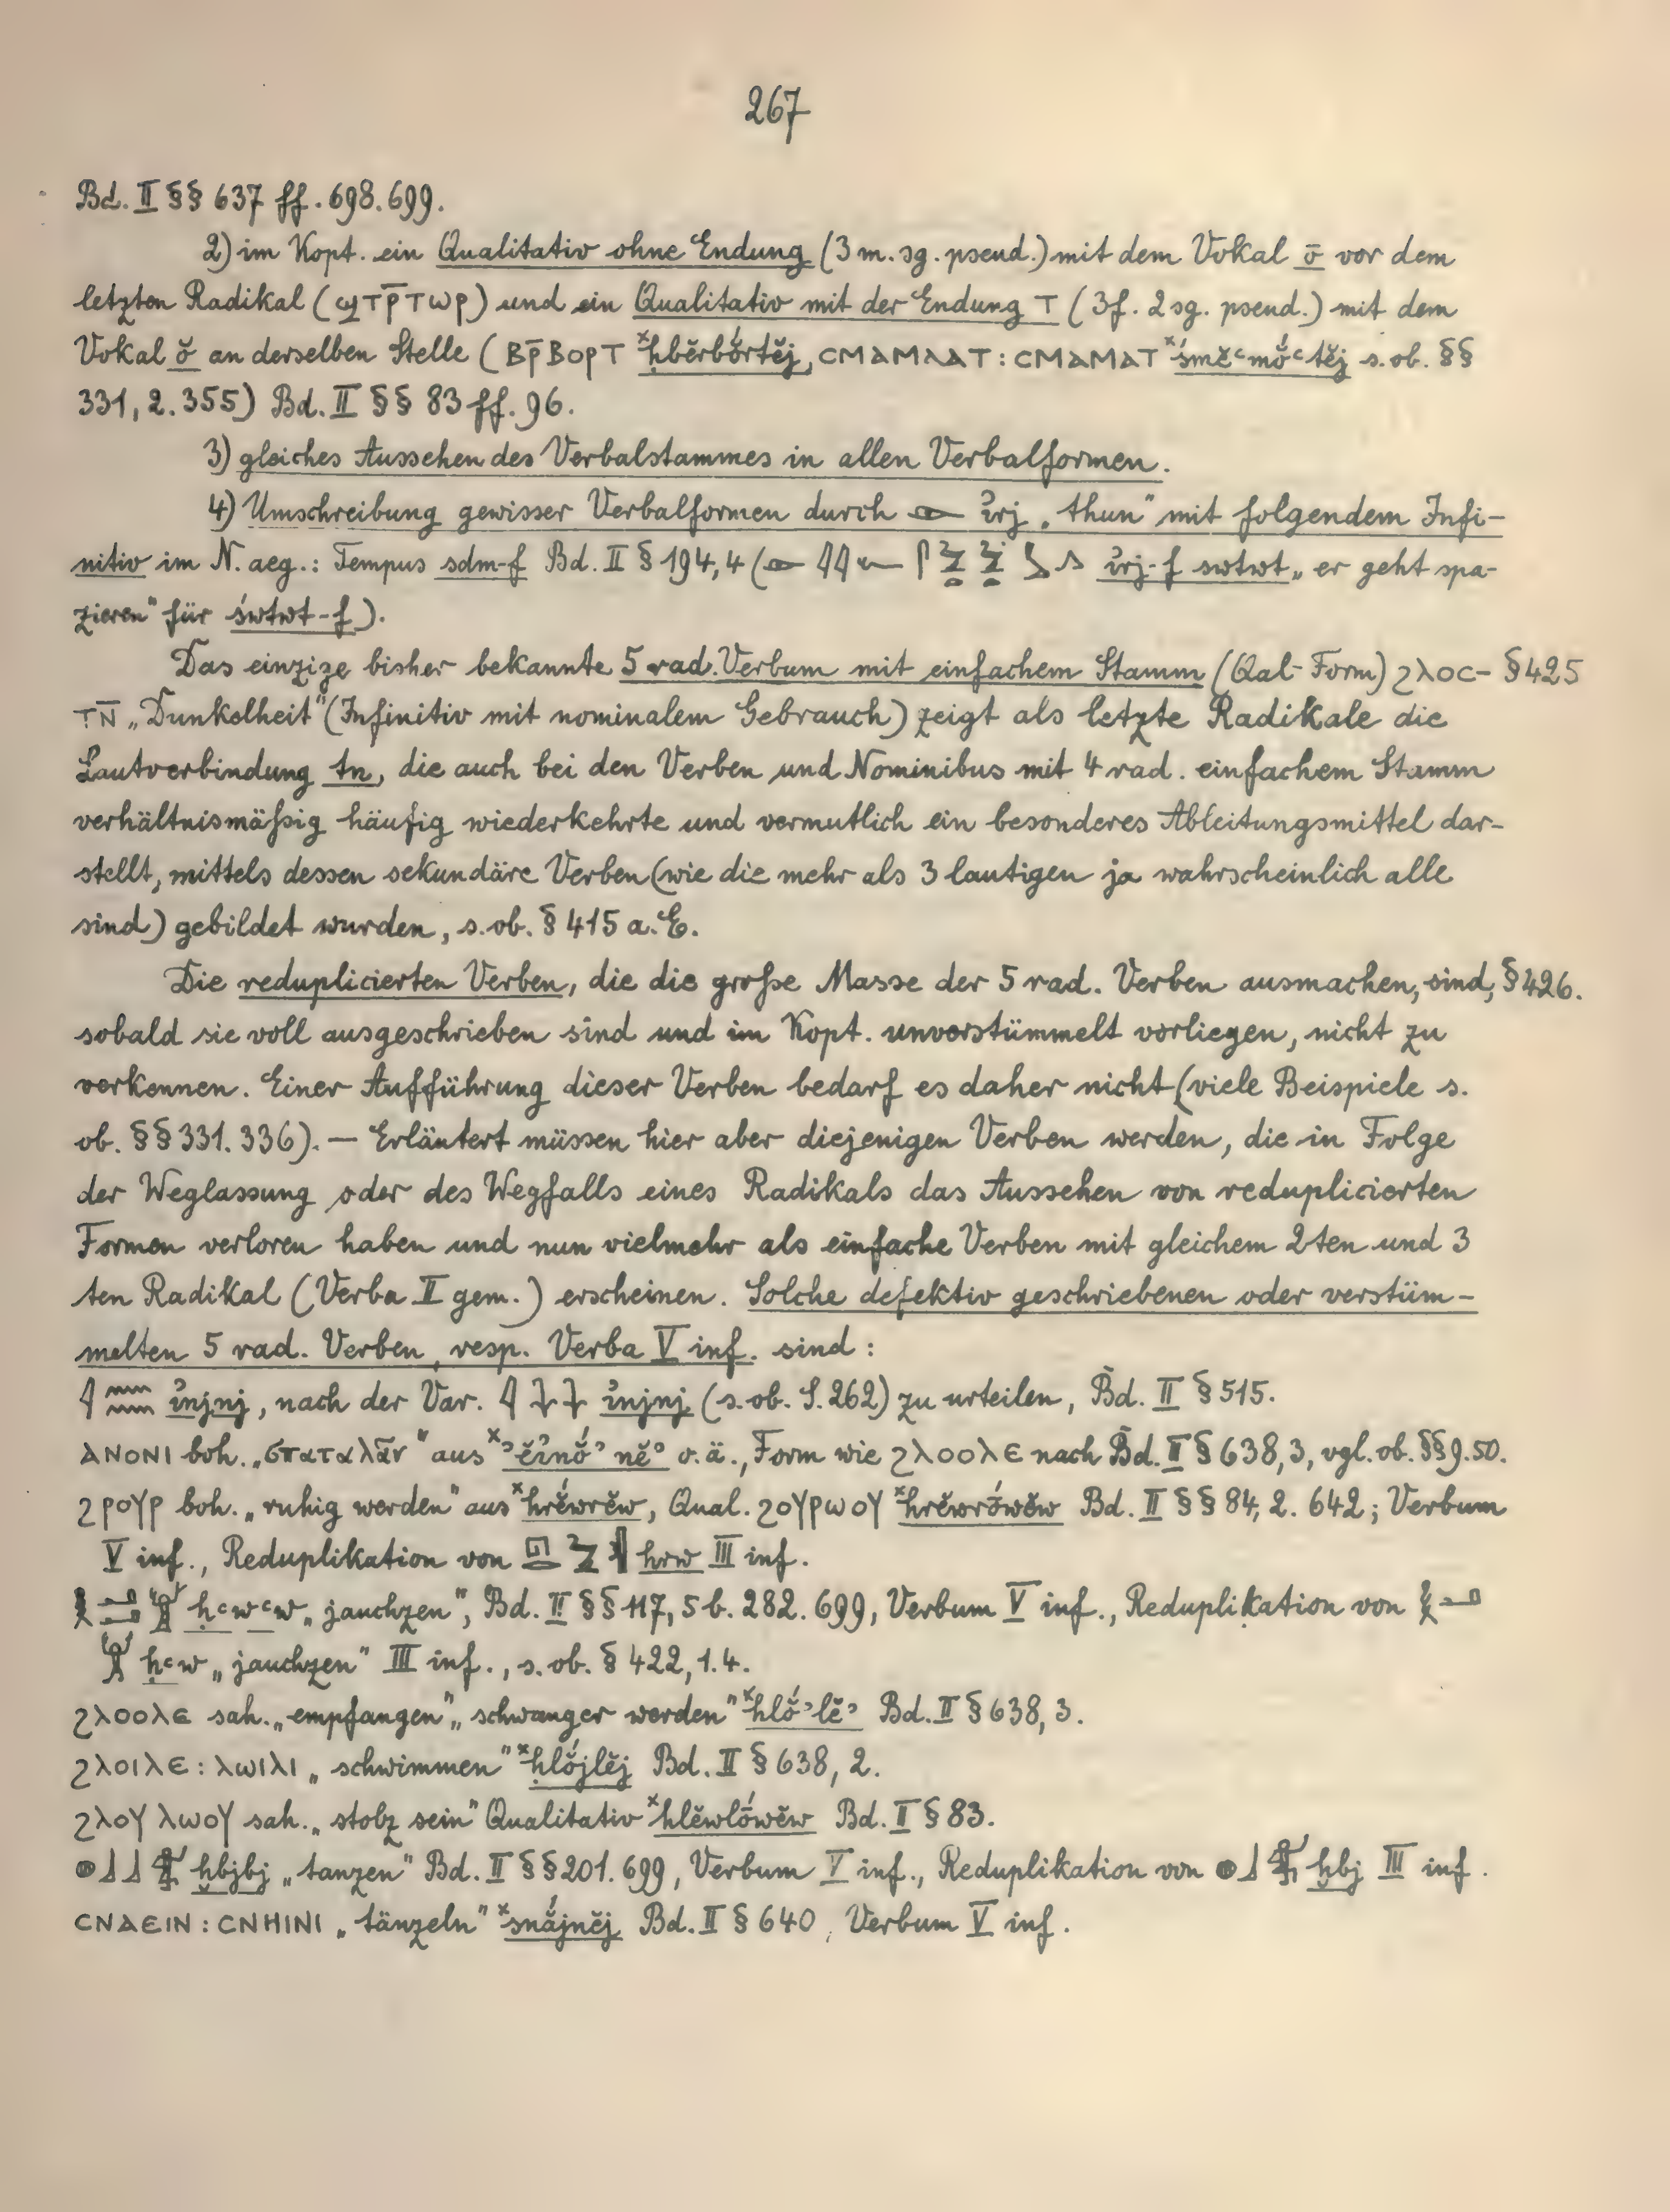 267
Bd. II §§ 637 ff. 698. 699.
2) im Kopt. ein Qualitativ ohne Endung (3 m. sg. pseud.) mit dem Vokal ō vor dem
letzten Radikal (ϣⲧⲣ̄ⲧⲱⲣ) und ein Qualitativ mit der Endung ⲧ (3f. 2 sg. pseud.) mit dem
Vokal ŏ an derselben Stelle (ⲃⲣ̄ⲃⲟⲣⲧ ˣḥbĕrbŏ́rtĕj, ⲥⲙⲁⲙⲁⲁⲧ : ⲥⲙⲁⲙⲁⲧ ˣśmĕꜥmŏ́ꜥtĕj s. ob. §§
331, 2. 355) Bd. II §§ 83 ff. 96.
3) gleiches Aussehen des Verbalstammes in allen Verbalformen.
4) Umschreibung gewisser Verbalformen durch 𓁹 ỉrj „thun" mit folgendem Infi-
nitiv im N. aeg.: Tempus sdm-f Bd. II § 194, 4 ( ỉrj-f swtwt „er geht spa-
zieren" für śwtwt-f).
Das einzige bisher bekannte 5 rad. Verbum mit einfachem Stamm (Qal-Form) ϩⲗⲟⲥ- § 425
ⲧⲛ̄ „Dunkelheit" (Infinitiv mit nominalem Gebrauch) zeigt als letzte Radikale die
Lautverbindung tn, die auch bei den Verben und Nominibus mit 4 rad. einfachem Stamm
verhältnismäßig häufig wiederkehrte und vermutlich ein besonderes Ableitungsmittel dar-
stellt, mittels dessen sekundäre Verben (wie die mehr als 3 lautigen ja wahrscheinlich alle
sind) gebildet wurden, s. ob. § 415 a. E.
Die reduplicierten Verben, die die große Masse der 5 rad. Verben ausmachen, sind, § 426.
sobald sie voll ausgeschrieben sind und im Kopt. unverstümmelt vorliegen, nicht zu
verkennen. Einer Aufführung dieser Verben bedarf es daher nicht (viele Beispiele s.
ob. §§ 331. 336). — Erläutert müssen hier aber diejenigen Verben werden, die in Folge
der Weglassung oder des Wegfalls eines Radikals das Aussehen von reduplicierten
Formen verloren haben und nun vielmehr als einfache Verben mit gleichem 2ten und 3
ten Radikal (Verba II gem.) erscheinen. Solche defektiv geschriebenen oder verstüm-
melten 5 rad. Verben, resp. Verba V inf. sind:
𓇋𓈖𓈖 ỉnjnj, nach der Var. 𓇋 ỉnjnj (s. ob. S. 262) zu urteilen, Bd. II § 515.
ⲁⲛⲟⲛⲓ boh. „σπαταλᾶν" aus o. ä., Form wie ϩⲗⲟⲟⲗⲉ nach Bd. II § 638, 3, vgl. ob. §§ 9. 50.
ϩⲣⲟⲩⲣ boh. „ruhig werden" aus ˣhrĕ́wrĕw, Qual. ϩⲟⲩⲣⲱⲟⲩ ˣhrĕwrṓwĕw Bd. II §§ 84, 2. 642; Verbum
V inf., Reduplikation von hrw III inf.
ḥꜥwꜥw „jauchzen", Bd. II §§ 117, 5 b. 282. 699, Verbum V inf., Reduplikation von 𓎛𓂝
𓀠 ḥꜥw „jauchzen" III inf., s. ob. § 422, 1. 4.
ϩⲗⲟⲟⲗⲉ sah. „empfangen", „schwanger werden" ˣhlŏ́ʾlĕʾ Bd. II § 638, 3.
ϩⲗⲟⲓⲗⲉ : ⲗⲱⲓⲗⲓ „schwimmen" ˣḥlŏ́jlĕj Bd. II § 638, 2.
ϩⲗⲟⲩ ⲗⲱⲟⲩ sah. „stolz sein" Qualitativ ˣhlĕwlṓwĕw Bd. II § 83.
𓐍𓃀𓃀 ḫbjbj „tanzen" Bd. II §§ 201. 699, Verbum V inf., Reduplikation von 𓐍𓃀 ḫbj III inf.
ⲥⲛⲁⲉⲓⲛ : ⲥⲛⲏⲓⲛⲓ „tänzeln" ˣsnắjnĕj Bd. II § 640, Verbum V inf.